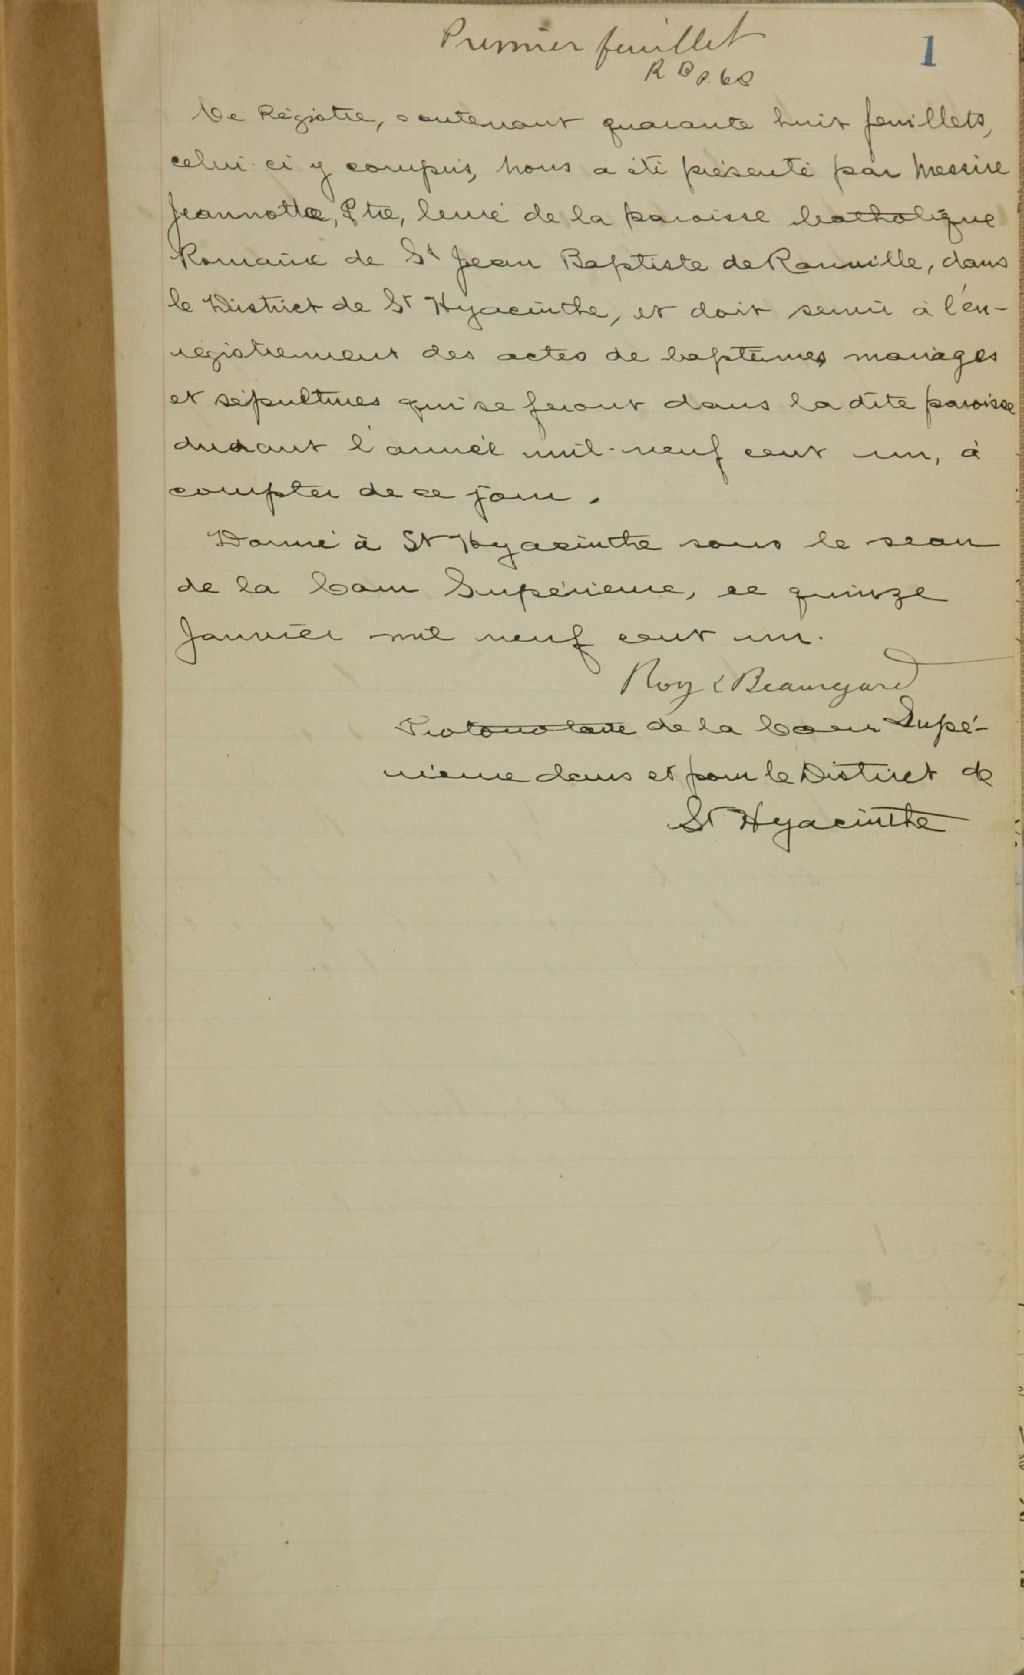 Premier feuillet
1
R B p. c s
Ce Régistre, contenant quarante huit feuillets,
celui-ci y compris, nous a été présenté par Messire
Jeannotte, Ptre, Curé de la paroisse Catholique
Romaine de St Jean Baptiste de Rouville, dans
le District de St Hyacinthe, et doit servir à l'en-
régistrement des actes de baptêmes, mariages
et sépultures qui se feront dans la dite paroisse
durant l'année mil-neuf cent un, à
compter de ce jour.
Donné à St Hyacinthe sous le sceau
de la Cour Supérieure, ce quinze
Janvier mil neuf cent un.
Roy & Beauregard
Protonotaire de la Cour Supé-
rieure dans et pour le District de
St Hyacinthe